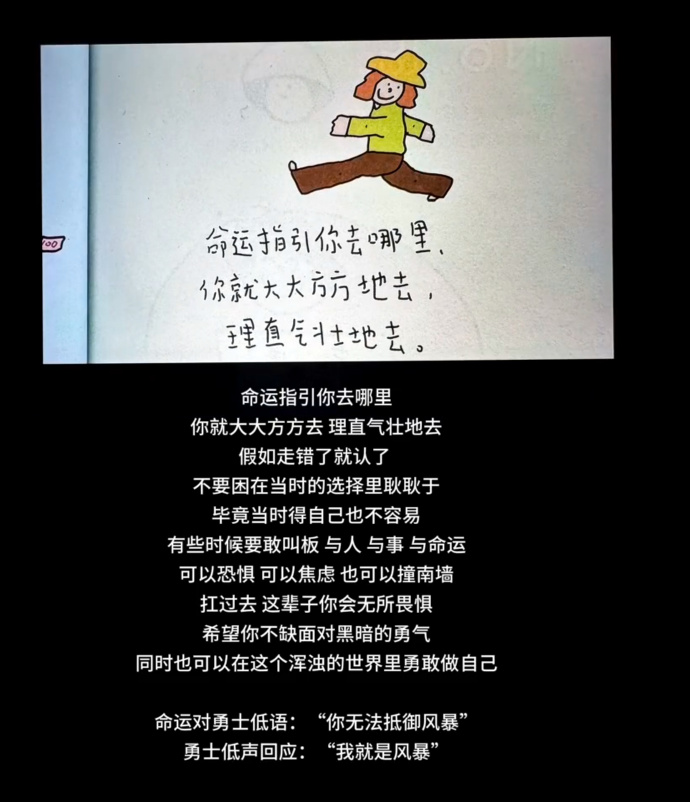 100
命运指引你去哪里、
你就大大方方地去，
理直气壮地去。
命运指引你去哪里
你就大大方方去 理直气壮地去
假如走错了就认了
不要困在当时的选择里耿耿于
毕竟当时得自己也不容易
有些时候要敢叫板 与人 与事 与命运
可以恐惧 可以焦虑 也可以撞南墙
扛过去 这辈子你会无所畏惧
希望你不缺面对黑暗的勇气
同时也可以在这个浑浊的世界里勇敢做自己
命运对勇士低语：“你无法抵御风暴”
勇士低声回应：“我就是风暴”